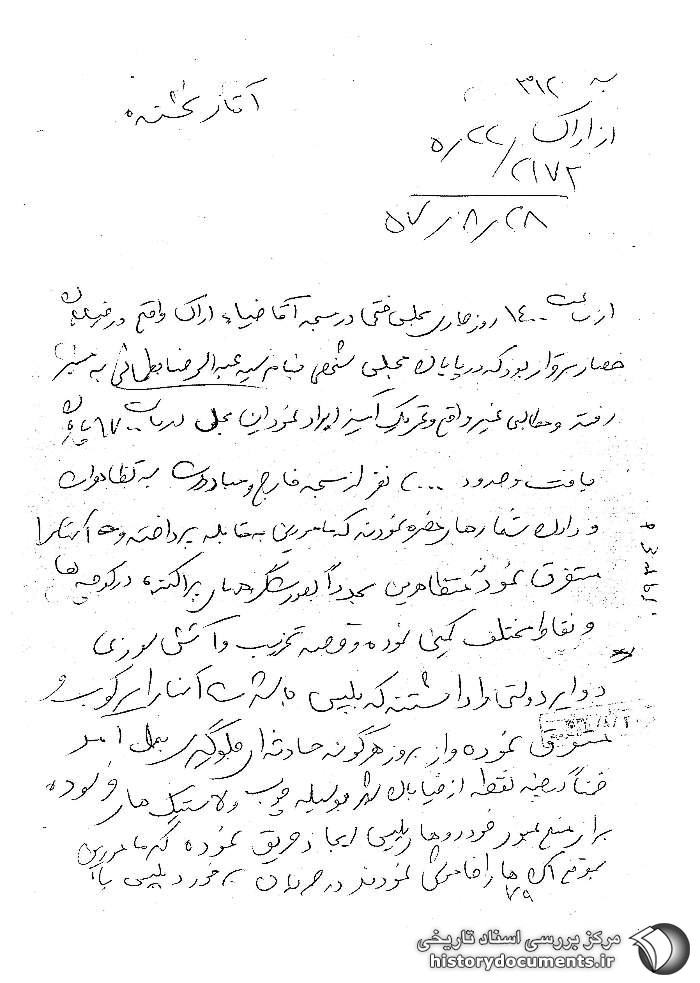 به ۳۱۲
آقای نخشنده
از اراک
۲۲/ه۵
۲۱۷۲
۵۷/۸/۲۸
از ساعت ۱۴۰۰ روز جاری مجلس ختمی در مسجد آقا ضیاء اراک واقع در خیابان
حصار برقرار بود که در پایان مجلس شخصی بنام سید عبدالرضا به منبر
رفته و مطالبی غیر واقع و تحریک آمیز ایراد نمود این مجلس در ساعت ۱۶۷۰۰ پایان
یافت و حدود ۲۰۰۰ نفر از مسجد خارج و مبادرت به تظاهرات
و دادن شعارهای مضره نمودند که مامورین به مقابله پرداخته و آنها را
متفرق نمودند متظاهرین مجدداً بصورت گروههای پراکنده در کوچه ها
و نقاط مختلف کمین نموده و قصد تخریب و آتش سوزی
دوایر دولتی را داشتند که پلیس به شدت آنها را سرکوب و
متفرق نموده و از بروز هرگونه حادثه ای جلوگیری بعمل آمد
ضمناً در چند نقطه از خیابان شهر بوسیله چوب و لاستیک های فرسوده
برای منع عبور خودروهای پلیس ایجاد حریق نموده که مامورین
بموقع آن ها را خاموش نمودند در جریان برخورد پلیس با
۷۹
مرکز بررسی اسناد تاریخی
historydocuments.ir